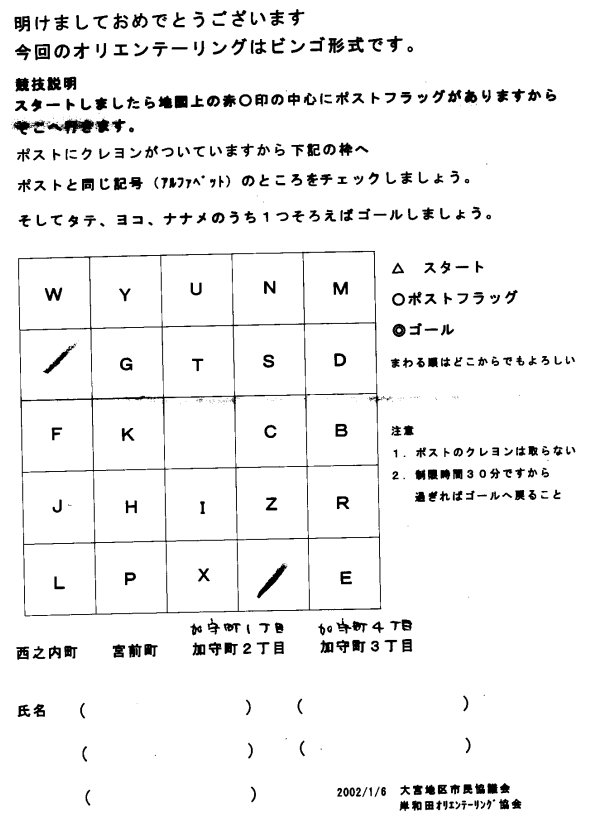 明けましておめでとうございます
今回のオリエンテーリングはビンゴ形式です。
競技説明
スタートしましたら地図上の赤○印の中心にポストフラッグがありますから
そこへ行きます。
ポストにクレヨンがついていますから下記の枠へ
ポストと同じ記号（ｱﾙﾌｧﾍﾞｯﾄ）のところをチェックしましょう。
そしてタテ、ヨコ、ナナメのうち１つそろえばゴールしましょう。
W Y U N M
G T S D
F K C B
J H I Z R
L P X E
△　スタート
○ポストフラッグ
◎ゴール
まわる順はどこからでもよろしい
注意
１．ポストのクレヨンは取らない
２．制限時間３０分ですから
過ぎればゴールへ戻ること
加守町１丁目 加守町４丁目
西之内町 宮前町 加守町２丁目 加守町３丁目
氏名 (　) (　)
(　) (　)
(　)
2002/1/6 大宮地区市民協議会
岸和田ｵﾘｴﾝﾃｰﾘﾝｸﾞ協会